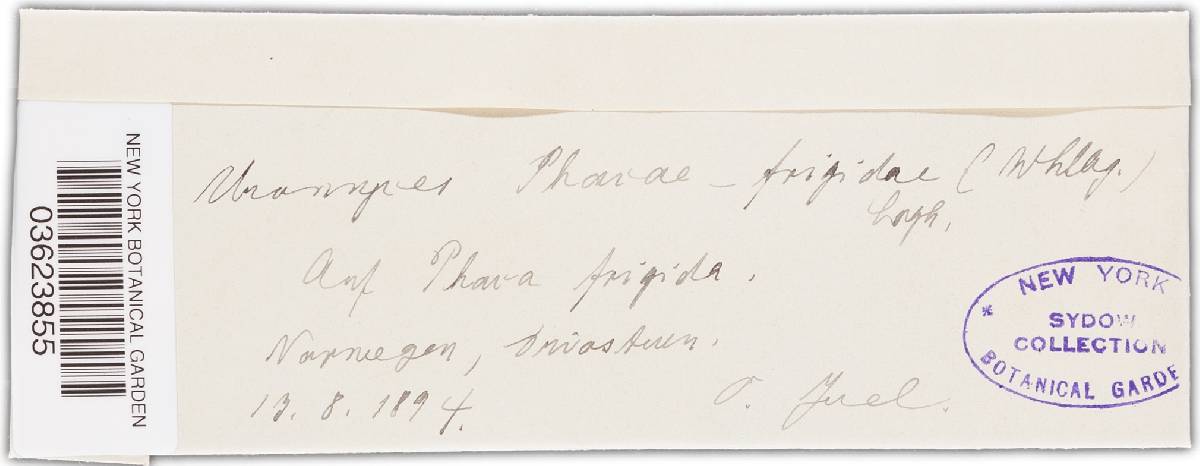 Uromyces Phacae-frigidae (Whlbg.)
Lagh.
Auf Phaca frigida.
Norwegen, Drivstuen.
13. 8. 1894.
O. Juel.
NEW YORK
SYDOW
COLLECTION
BOTANICAL GARDE
NEW YORK BOTANICAL GARDEN
03623855